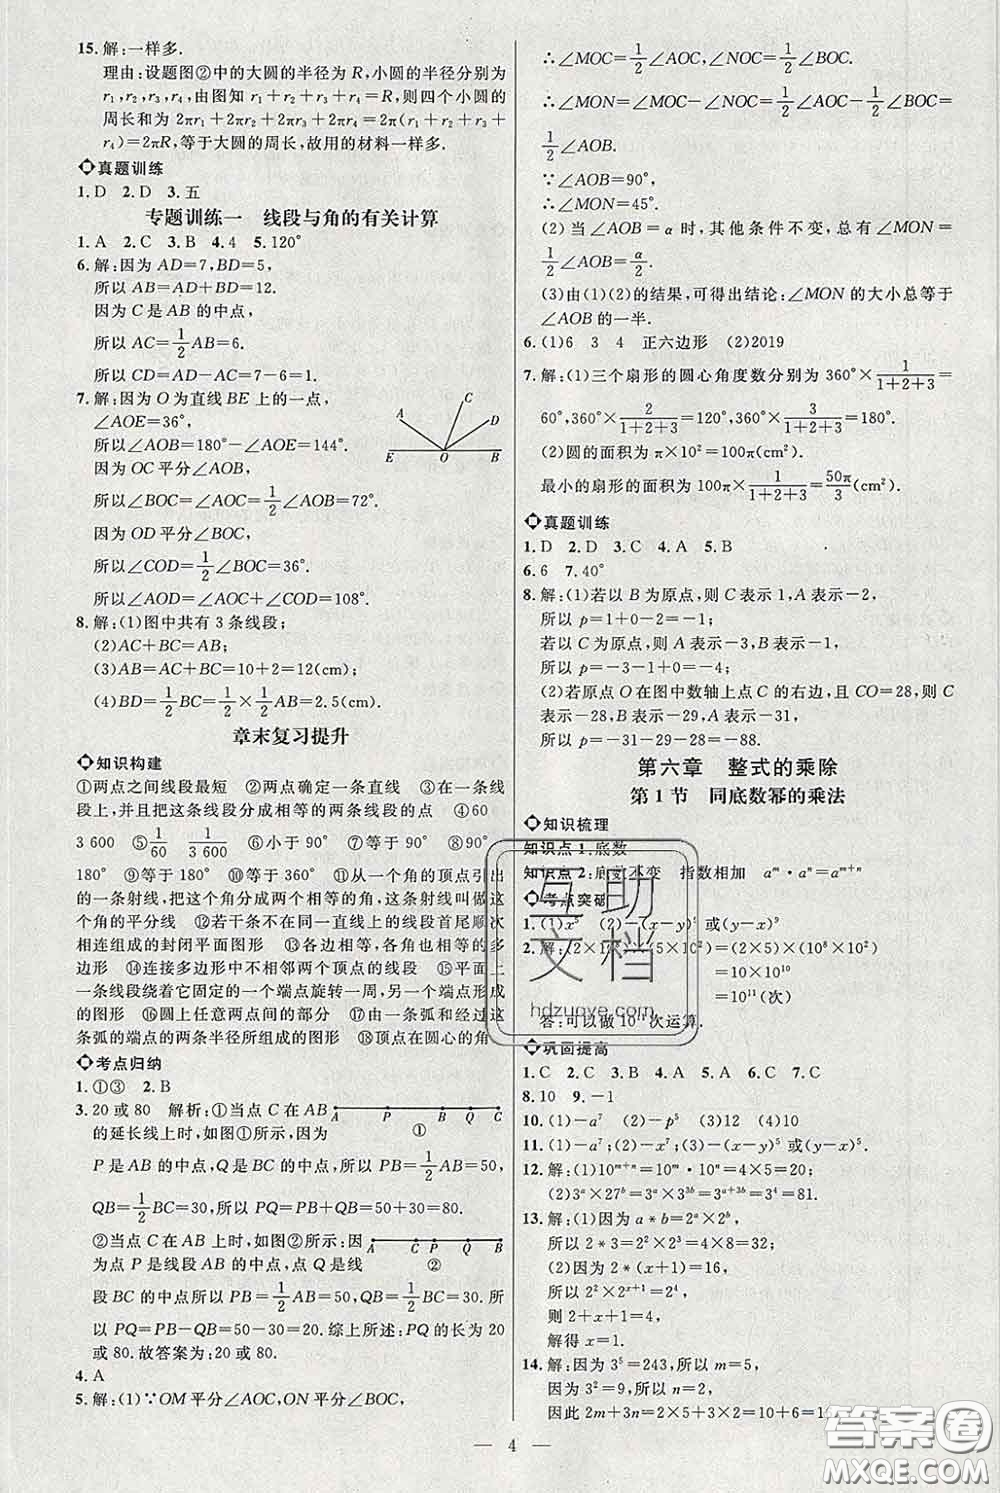 15.解:一样多.
理由:设题图②中的大圆的半径为R,小圆的半径分别为
r₁,r₂,r₃,r₄,由图知r₁+r₂+r₃+r₄=R,则四个小圆的
周长和为2πr₁+2πr₂+2πr₃+2πr₄=2π(r₁+r₂+r₃+
r₄)=2πR,等于大圆的周长,故用的材料一样多.
真题训练
1.D 2.D 3.五
专题训练一 线段与角的有关计算
1.A 2.C 3.B 4.4 5.120°
6.解:因为AD=7,BD=5,
所以AB=AD+BD=12.
因为C是AB的中点,
所以AC=1/2AB=6.
所以CD=AD-AC=7-6=1.
7.解:因为O为直线BE上的一点,
∠AOE=36°,
所以∠AOB=180°-∠AOE=144°.
因为OC平分∠AOB,
所以∠BOC=∠AOC=1/2∠AOB=72°.
因为OD平分∠BOC,
所以∠COD=1/2∠BOC=36°.
所以∠AOD=∠AOC+∠COD=108°.
A C D E O B
8.解:(1)图中共有3条线段;
(2)AC+BC=AB;
(3)AB=AC+BC=10+2=12(cm);
(4)BD=1/2BC=1/2×1/2AB=2.5(cm).
章末复习提升
知识构建
①两点之间线段最短 ②两点确定一条直线 ③在线段
上,并且把这条线段分成相等的两条线段的点 ④60
3 600 ⑤1/60 1/3 600 ⑥小于90° ⑦等于90° ⑧大于90°小于
180° ⑨等于180° ⑩等于360° ⑪从一个角的顶点引出
的一条射线,把这个角分成两个相等的角,这条射线叫做这
个角的平分线 ⑫若干条不在同一直线上的线段首尾顺次
相连组成的封闭平面图形 ⑬各边相等,各角也相等的多
边形 ⑭连接多边形中不相邻两个顶点的线段 ⑮平面内一
条线段绕着它固定的一个端点旋转一周,另一端点形成
的图形 ⑯圆上任意两点间的部分 ⑰由一条弧和经过这
条弧的端点的两条半径所组成的图形 ⑱顶点在圆心的角
考点归纳
1.①③ 2.B
3.20或80 解析:①当点C在AB
的延长线上时,如图①所示,因为
A P B Q C
①
P是AB的中点,Q是BC的中点,所以PB=1/2AB=50,
QB=1/2BC=30,所以PQ=PB+QB=50+30=80.
②当点C在AB上时,如图②所示:因
为点P是线段AB的中点,点Q是线
A C P Q B
②
段BC的中点所以PB=1/2AB=50,QB=1/2BC=30.所
以PQ=PB-QB=50-30=20.综上所述:PQ的长为20
或80.故答案为:20或80.
4.A
5.解:(1)∵OM平分∠AOC,ON平分∠BOC,
∴∠MOC=1/2∠AOC,∠NOC=1/2∠BOC.
∴∠MON=∠MOC-∠NOC=1/2∠AOC-1/2∠BOC=
1/2∠AOB.
∵∠AOB=90°,
∴∠MON=45°.
(2)当∠AOB=α时,其他条件不变,总有∠MON=
1/2∠AOB=α/2.
(3)由(1)(2)的结果,可得出结论:∠MON的大小总等于
∠AOB的一半.
6.(1)6 3 4 正六边形 (2)2019
7.解:(1)三个扇形的圆心角度数分别为360°×1/(1+2+3)=
60°,360°×2/(1+2+3)=120°,360°×3/(1+2+3)=180°.
(2)圆的面积为π×10²=100π(cm²).
最小的扇形的面积为100π×1/(1+2+3)=50π/3(cm²).
真题训练
1.D 2.D 3.C 4.A 5.B
6.6 7.40°
8.解:(1)若以B为原点,则C表示1,A表示-2,
所以p=1+0-2=-1;
若以C为原点,则A表示-3,B表示-1,
所以p=-3-1+0=-4;
(2)若原点O在图中数轴上点C的右边,且CO=28,则C
表示-28,B表示-29,A表示-31,
所以p=-31-29-28=-88.
第六章 整式的乘除
第1节 同底数幂的乘法
知识梳理
知识点1:底数
知识点2:底数不变 指数相加 aᵐ·aⁿ=aᵐ⁺ⁿ
考点突破
1.(1)x⁵ (2)-(x-y)⁵或(y-x)⁵
2.解:(2×10⁸)×(5×10²)=(2×5)×(10⁸×10²)
=10×10¹⁰
=10¹¹(次)
答:可以做10¹¹次运算.
巩固提高
1.C 2.C 3.C 4.A 5.C 6.C 7.C
8.10 9.-1
10.(1)-a⁷ (2)-p⁵ (3)12 (4)10
11.(1)-a⁷;(2)-x⁷;(3)-(x-y)⁵或(y-x)⁵.
12.解:(1)10ᵐ⁺ⁿ=10ᵐ·10ⁿ=4×5=20;
(2)3ᵃ×27ᵇ=3ᵃ×3³ᵇ=3ᵃ⁺³ᵇ=3⁴=81.
13.解:(1)因为a*b=2ᵃ×2ᵇ,
所以2*3=2²×2³=4×8=32;
(2)因为2*(x+1)=16,
所以2²×2ˣ⁺¹=2⁴,
则2+x+1=4,
解得x=1.
14.解:因为3⁵=243,所以m=5,
因为3²=9,所以n=2,
因此2m+3n=2×5+3×2=10+6=1
互助
文档
hdzuoye.com
答案圈
MXQE.COM
— 4 —